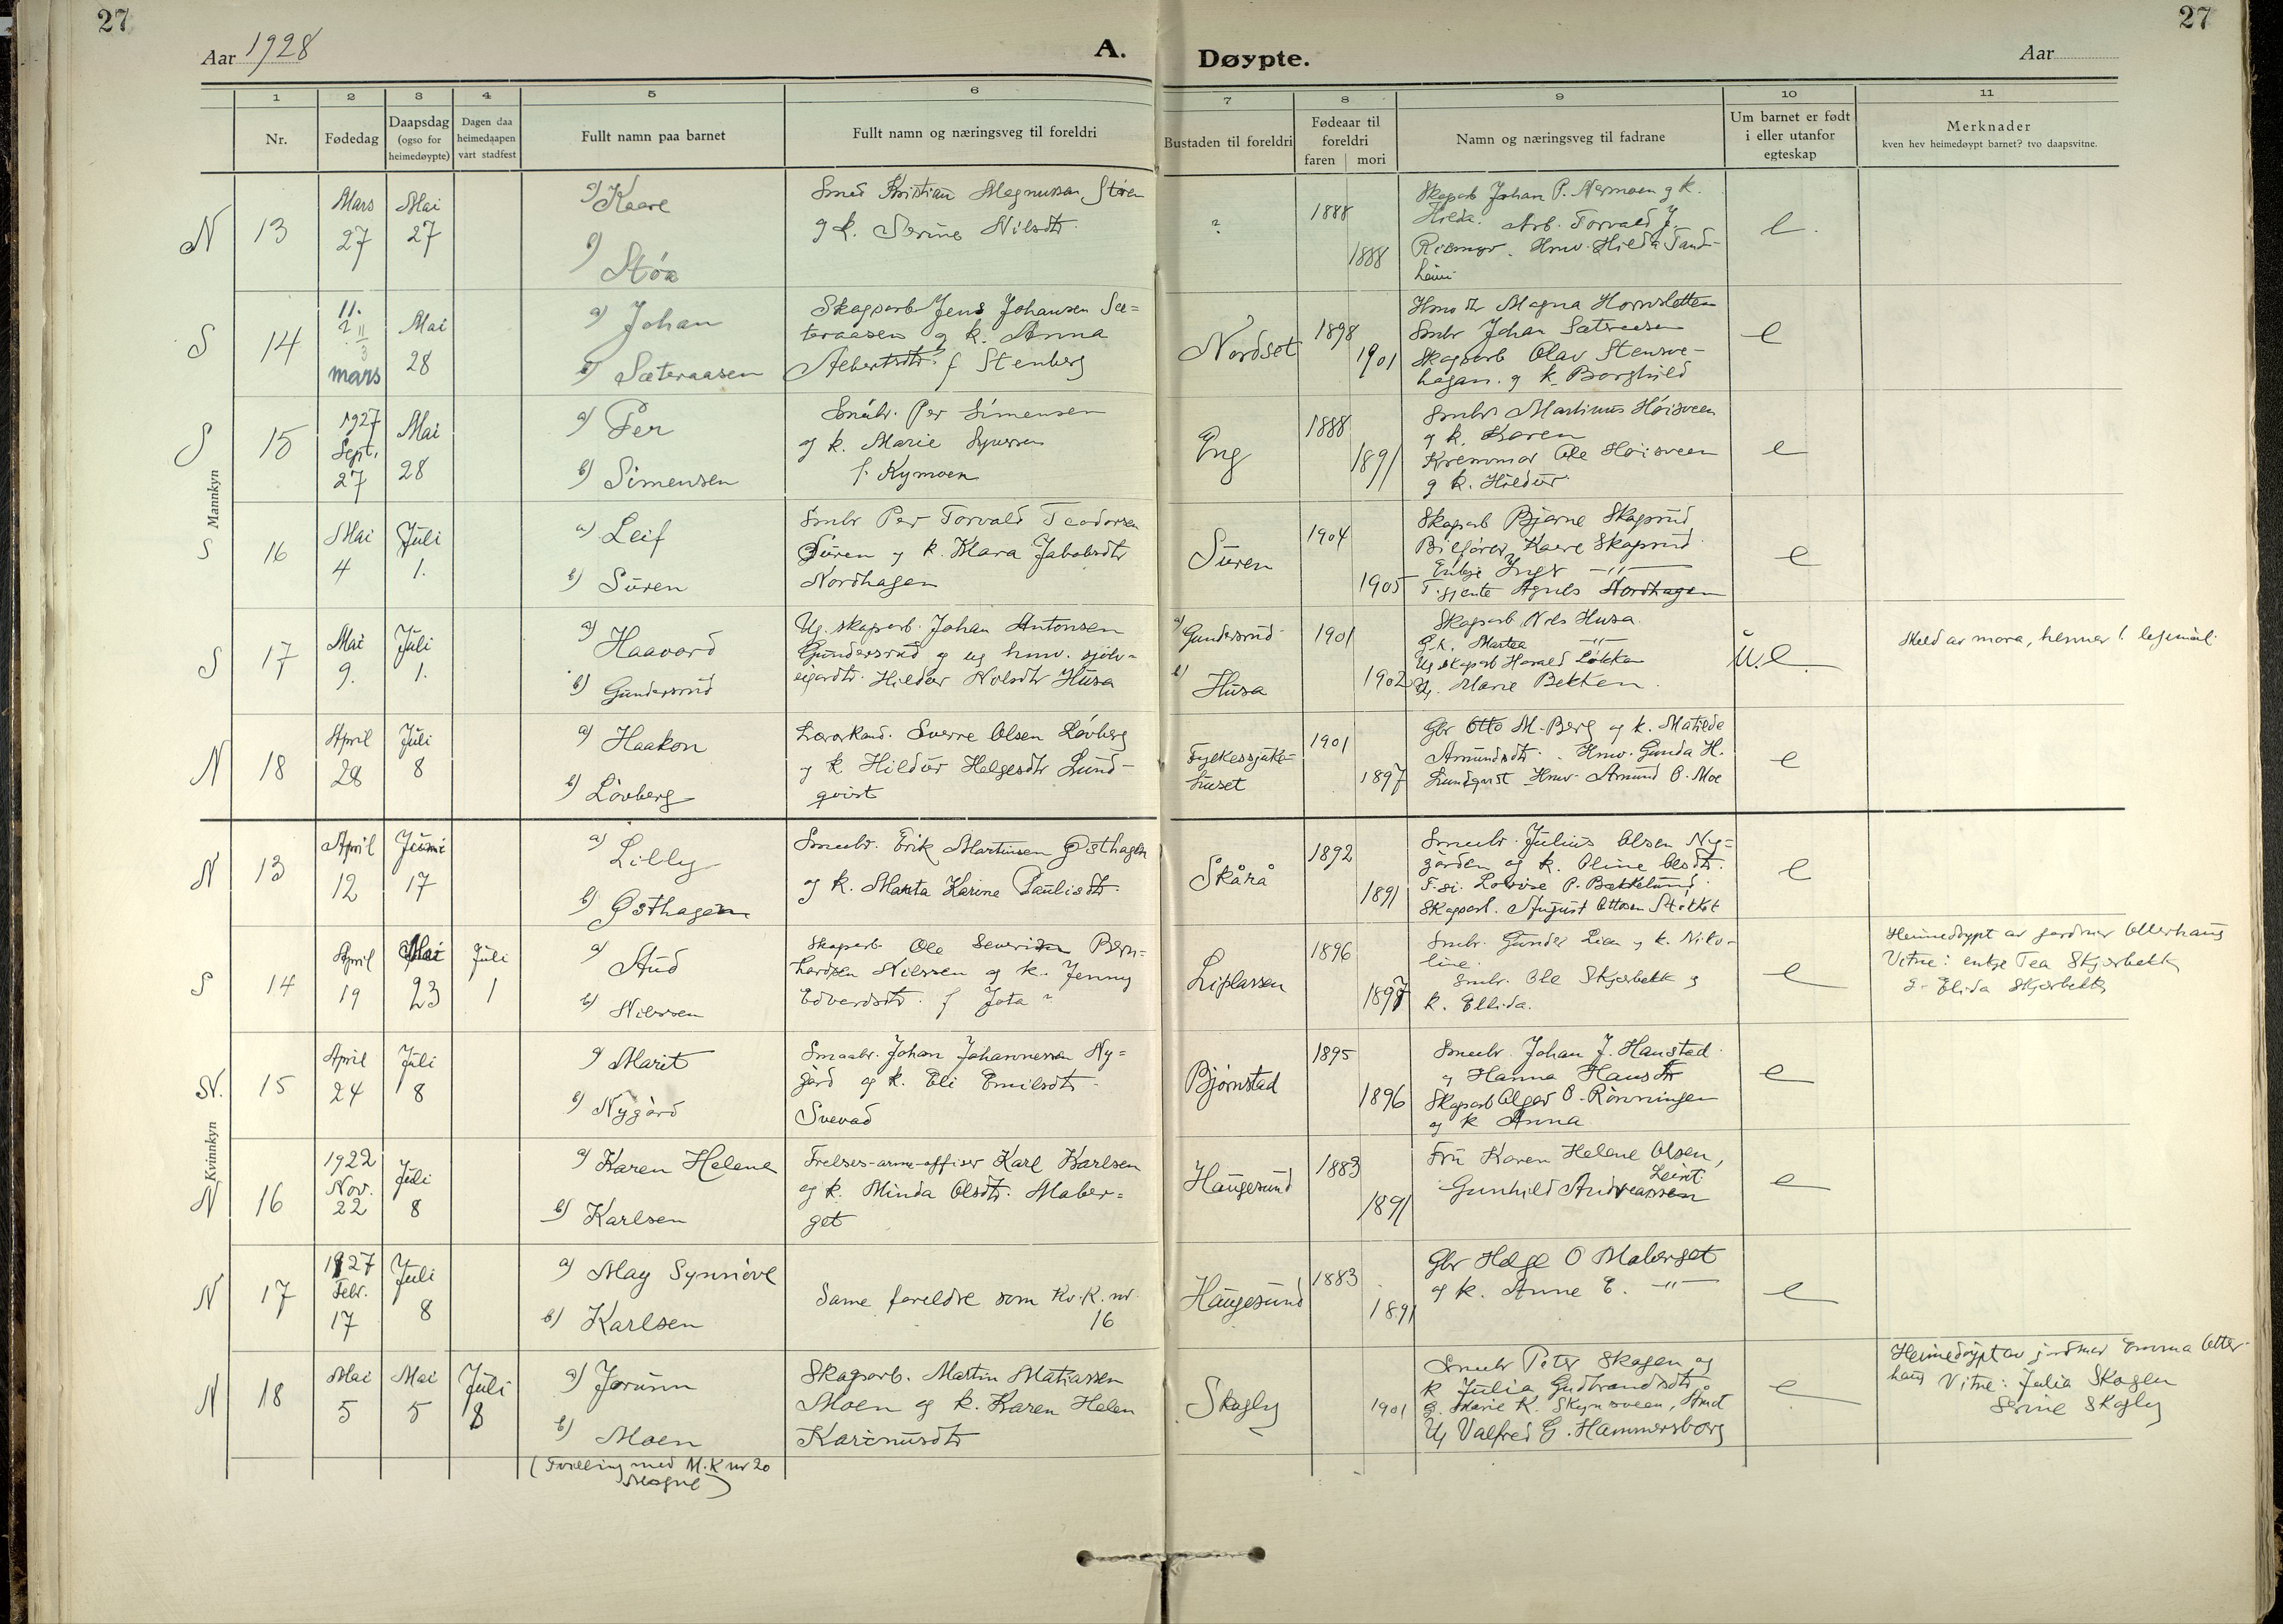 27
27
Aar 1928
A.
Døypte.
Aar
1
2
3
4
5
6
7
8
9
10
11
Nr.
Fødedag
Daapsdag
(ogso for
heimedøypte)
Dagen daa
heimedaapen
vart stadfest
Fullt namn paa barnet
Fullt namn og næringsveg til foreldri
Bustaden til foreldri
Fødeaar til
foreldri
faren
mori
Namn og næringsveg til fadrane
Um barnet er født
i eller utanfor
egteskap
Merknader
kven hev heimedøypt barnet? tvo daapsvitne.
Mannkyn
N
13
Mars
27
Mai
27
a) Kaare
b)
Smed Kristian Magnussen
g k. Serine Nilsdtr.
?
1888
1888
Skogarb Johan P. Nermoen g k.
Hilda. Arb. Torvald J.
Hmv. Hilda
e.
S
14
11.
mars
Mai
28
a) Johan
b) Sæteraasen
Skogsarb Jens Johansen Sæ=
teraasen g k. Anna
Albertsdtr. f Stenberg
Nordset
1898
1901
Magna Hornsletten
Smbr Johan Sæteraasen
Skogsarb Olav Stensve-
hagan. g k. Borghild
e
S
15
1927
Sept.
27
Mai
28
a) Per
b) Simensen
Småbr. Per Simensen
og k. Marie Syversen
f. Kymoen
Eng
1888
1891
Smbr Martinus Høisveen
og k. Karen
Ole Høisveen
g k. Hildur
e
S
16
Mai
4
Juli
1.
a) Leif
b) Suren
Smbr Per Torvald Teodorsen
Suren g k. Klara Jakobsdtr
Nordhagen
Suren
1904
1905
Skogarb Bjarne Skaprud
Bilfører Kaare Skaprud
Enkje Inga -"-
T.gjente Agnes Nordhagen
e
S
17
Mai
9.
Juli
1.
a) Haavard
b) Gundersrud
Ug. skogarb. Johan Antonsen
Gundersrud g ug hmv. sjølv-
eigardtr. Hildur Nilsdtr Husa
a) Gundersrud
b) Husa
1901
1902
Skogarb Nils Husa
G.k. Martea -"-
Ug skogarb Harald Løkken
Ug. Marie Bekken.
U.e.
Meld av mora, hennar 1. legemål.
N
18
April
28
Juli
8
a) Haakon
b) Løvberg
Lærarkand. Sverre Olsen Løvberg
g k Hildur Helgesdtr Lund-
qvist
Fylkessjuke-
huset
1901
1897
Gbr Otto M. Berg og k. Matilde
Amundsdtr. Hmv. Gunda H.
Lundqvist Hmv. Amund O. Moe
e
Kvinnkyn
N
13
April
12
Juni
17
a) Lilly
b) Østhagen
Smubr. Erik Martinsen Østhagen
og k. Marta Karine Paulisdtr.
Skårå
1892
1891
Smubr. Julius Olsen Ny=
gården og k. Oline Olsdtr.
T.gj. Lovise P. Bækkelund
Skogsarb. August Ottosen
e
S
14
April
19
Mai
23
Juli
1
a) Aud
b) Nilssen
Skogarb Ole Severin Bern-
hardsen Nilssen og k. Jenny
Edvardsdtr. f Jota ?
Liplassen
1896
1897
Smbr. Gunder Lien g k. Niko-
line.
Smbr. Ole Skjærbekk g
k. Ellida.
e
Heimedøypt av jordmor Otterhaug
Vitne: enkje Tea Skjærbekk,
g Elida Skjærbekk
N.
15
April
24
Juli
8
a) Marit
b) Nygård
Smaabr. Johan Johannessen Ny=
gård og k. Eli Emilsdtr.
Svevad
Bjørnstad
1895
1896
Smubr. Johan J. Hanstad
g Hanna Hansdtr
Skogarb Olger O. Rønningen
og k Anna
e
N
16
1922
Nov.
22
Juli
8
a) Karen Helene
b) Karlsen
Frelses-arme-offiser Karl Karlsen
og k. Minda Olsdtr. Maber=
get
Haugesund
1883
1891
Fru Karen Helene Olsen,
Leint.
Gunhild Andreassen
e
N
17
1927
Febr.
17
Juli
8
a) May Synnøve
b) Karlsen
Same foreldre som Kv.K. nr.
16
Haugesund
1883
1891
Gbr Helge O Maberget
og k. Anne E. -"-
e
N
18
Mai
5
Mai
5
Juli
8
a) Jorunn
b) Moen
(Tvilling med M.K nr 20
Magne)
Skogsarb. Martin Matiassen
Moen og k. Karen Helen
Karinusdtr
Skogly
1901
Smubr Peter Skogen og
k Julia Gudbrandsdtr
G. Marie K. Skynsveen, Åmot
Ug Valfred G. Hammersborg
e
Heimedøypt av jordmor Emma Otter-
haug Vitne: Julia Skogen
Serine Skogly